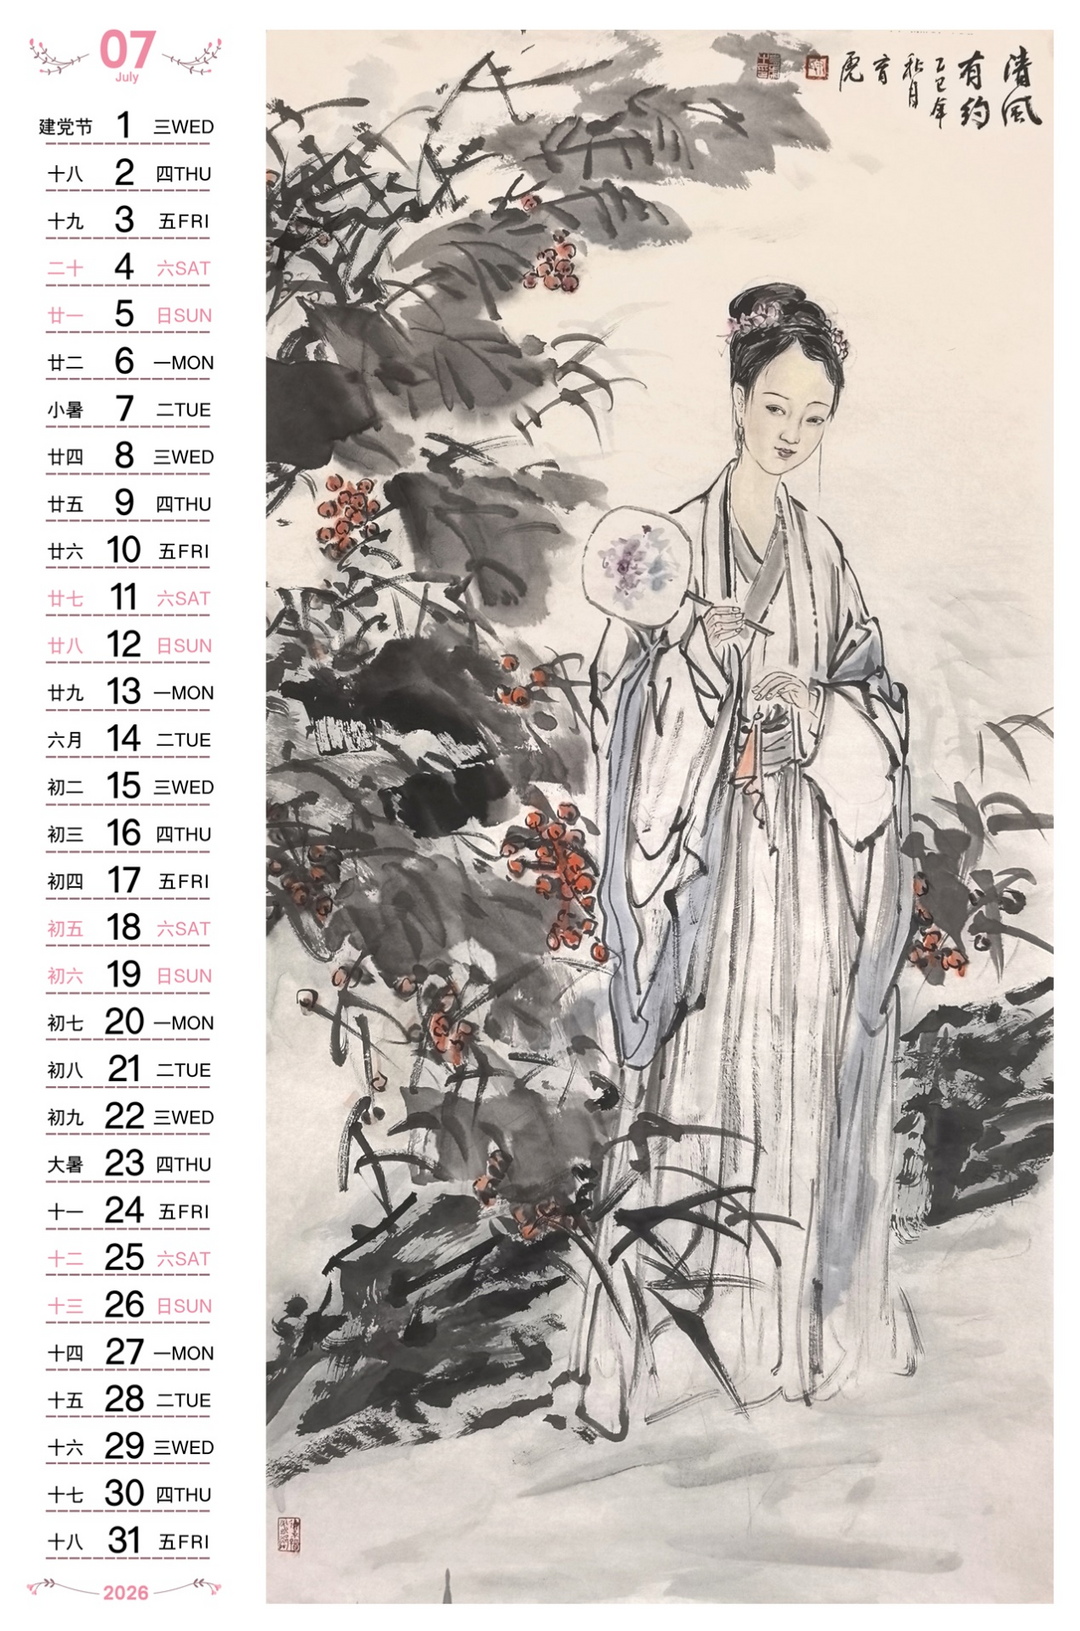 07
July
建党节 1 三WED
十八 2 四THU
十九 3 五FRI
二十 4 六SAT
廿一 5 日SUN
廿二 6 一MON
小暑 7 二TUE
廿四 8 三WED
廿五 9 四THU
廿六 10 五FRI
廿七 11 六SAT
廿八 12 日SUN
廿九 13 一MON
六月 14 二TUE
初二 15 三WED
初三 16 四THU
初四 17 五FRI
初五 18 六SAT
初六 19 日SUN
初七 20 一MON
初八 21 二TUE
初九 22 三WED
大暑 23 四THU
十一 24 五FRI
十二 25 六SAT
十三 26 日SUN
十四 27 一MON
十五 28 二TUE
十六 29 三WED
十七 30 四THU
十八 31 五FRI
2026
清风
有约
乙巳年
秋月
育
虎